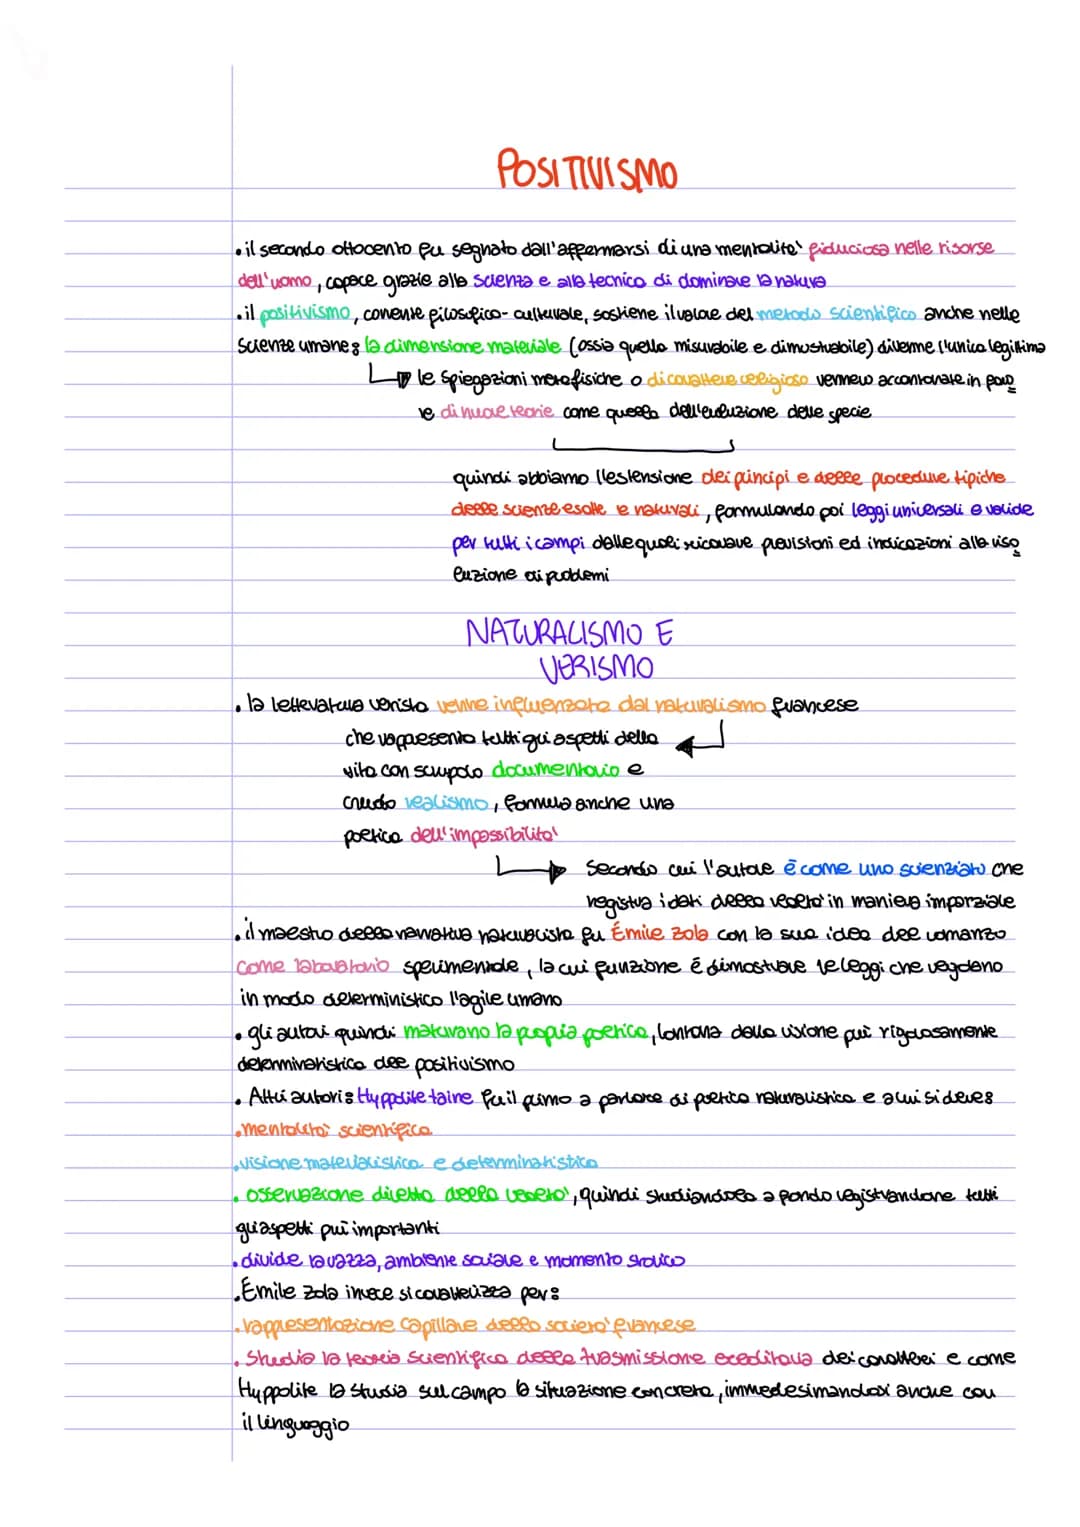 POSITIVISMO
• il secondo ottocento fu segnato dall'affermarsi di una mentalita' fiduciosa nelle risorse
dell'uomo, capace grazie alla scienza e alla tecnica di dominare la natura
• il positivismo, corrente filosofico-culturale, sostiene il valore del metodo scientifico anche nelle
scienze umane: la dimensione materiale (ossia quella misurabile e dimostrabile) divenne l'unica legittima
le spiegazioni metafisiche o di carattere religioso vennero accantonate in favo
re di nuove teorie come quella dell'evoluzione delle specie
quindi abbiamo l'estensione dei principi e delle procedure tipiche
delle scienze esatte e naturali, formulando poi leggi universali e valide
per tutti i campi dalle quali ricavare previsioni ed indicazioni alla riso
luzione ai problemi
NATURALISMO E
VERISMO
• la letteratura verista venne influenzata dal naturalismo francese
che rappresenta tutti gli aspetti della
vita con scrupolo documentario e
crudo realismo, formula anche una
poetica dell'impossibilita'
Secondo cui l'autore é come uno scienziato che
registra i dati della realta' in maniera imparziale
• il maestro della narrativa naturalista fu Émile Zola con la sua idea del romanzo
come laboratorio sperimentale, la cui funzione é dimostrare le leggi che regolano
in modo deterministico l'agile umano
• gli autori quindi maturano la propria poetica, lontana dalla visione piú rigorosamente
deterministica del positivismo
• Altri autori: Hyppolite taine fu il primo a parlare di poetica naturalistica e a lui si deve:
• mentalita' scientifica
• visione materialistica e deterministica
• osservazione diretta della realta', quindi studiandola a fondo registrandone tutti
gli aspetti piú importanti
• divide la razza, ambiente sociale e momento storico
• Émile Zola invece si caratterizza per:
• rappresentazione capillare della societa' francese
• Studia la teoria scientifica della trasmissione ereditaria dei caratteri e come
Hyppolite la studia sul campo la situazione concreta, immedesimandosi anche con
il linguaggio